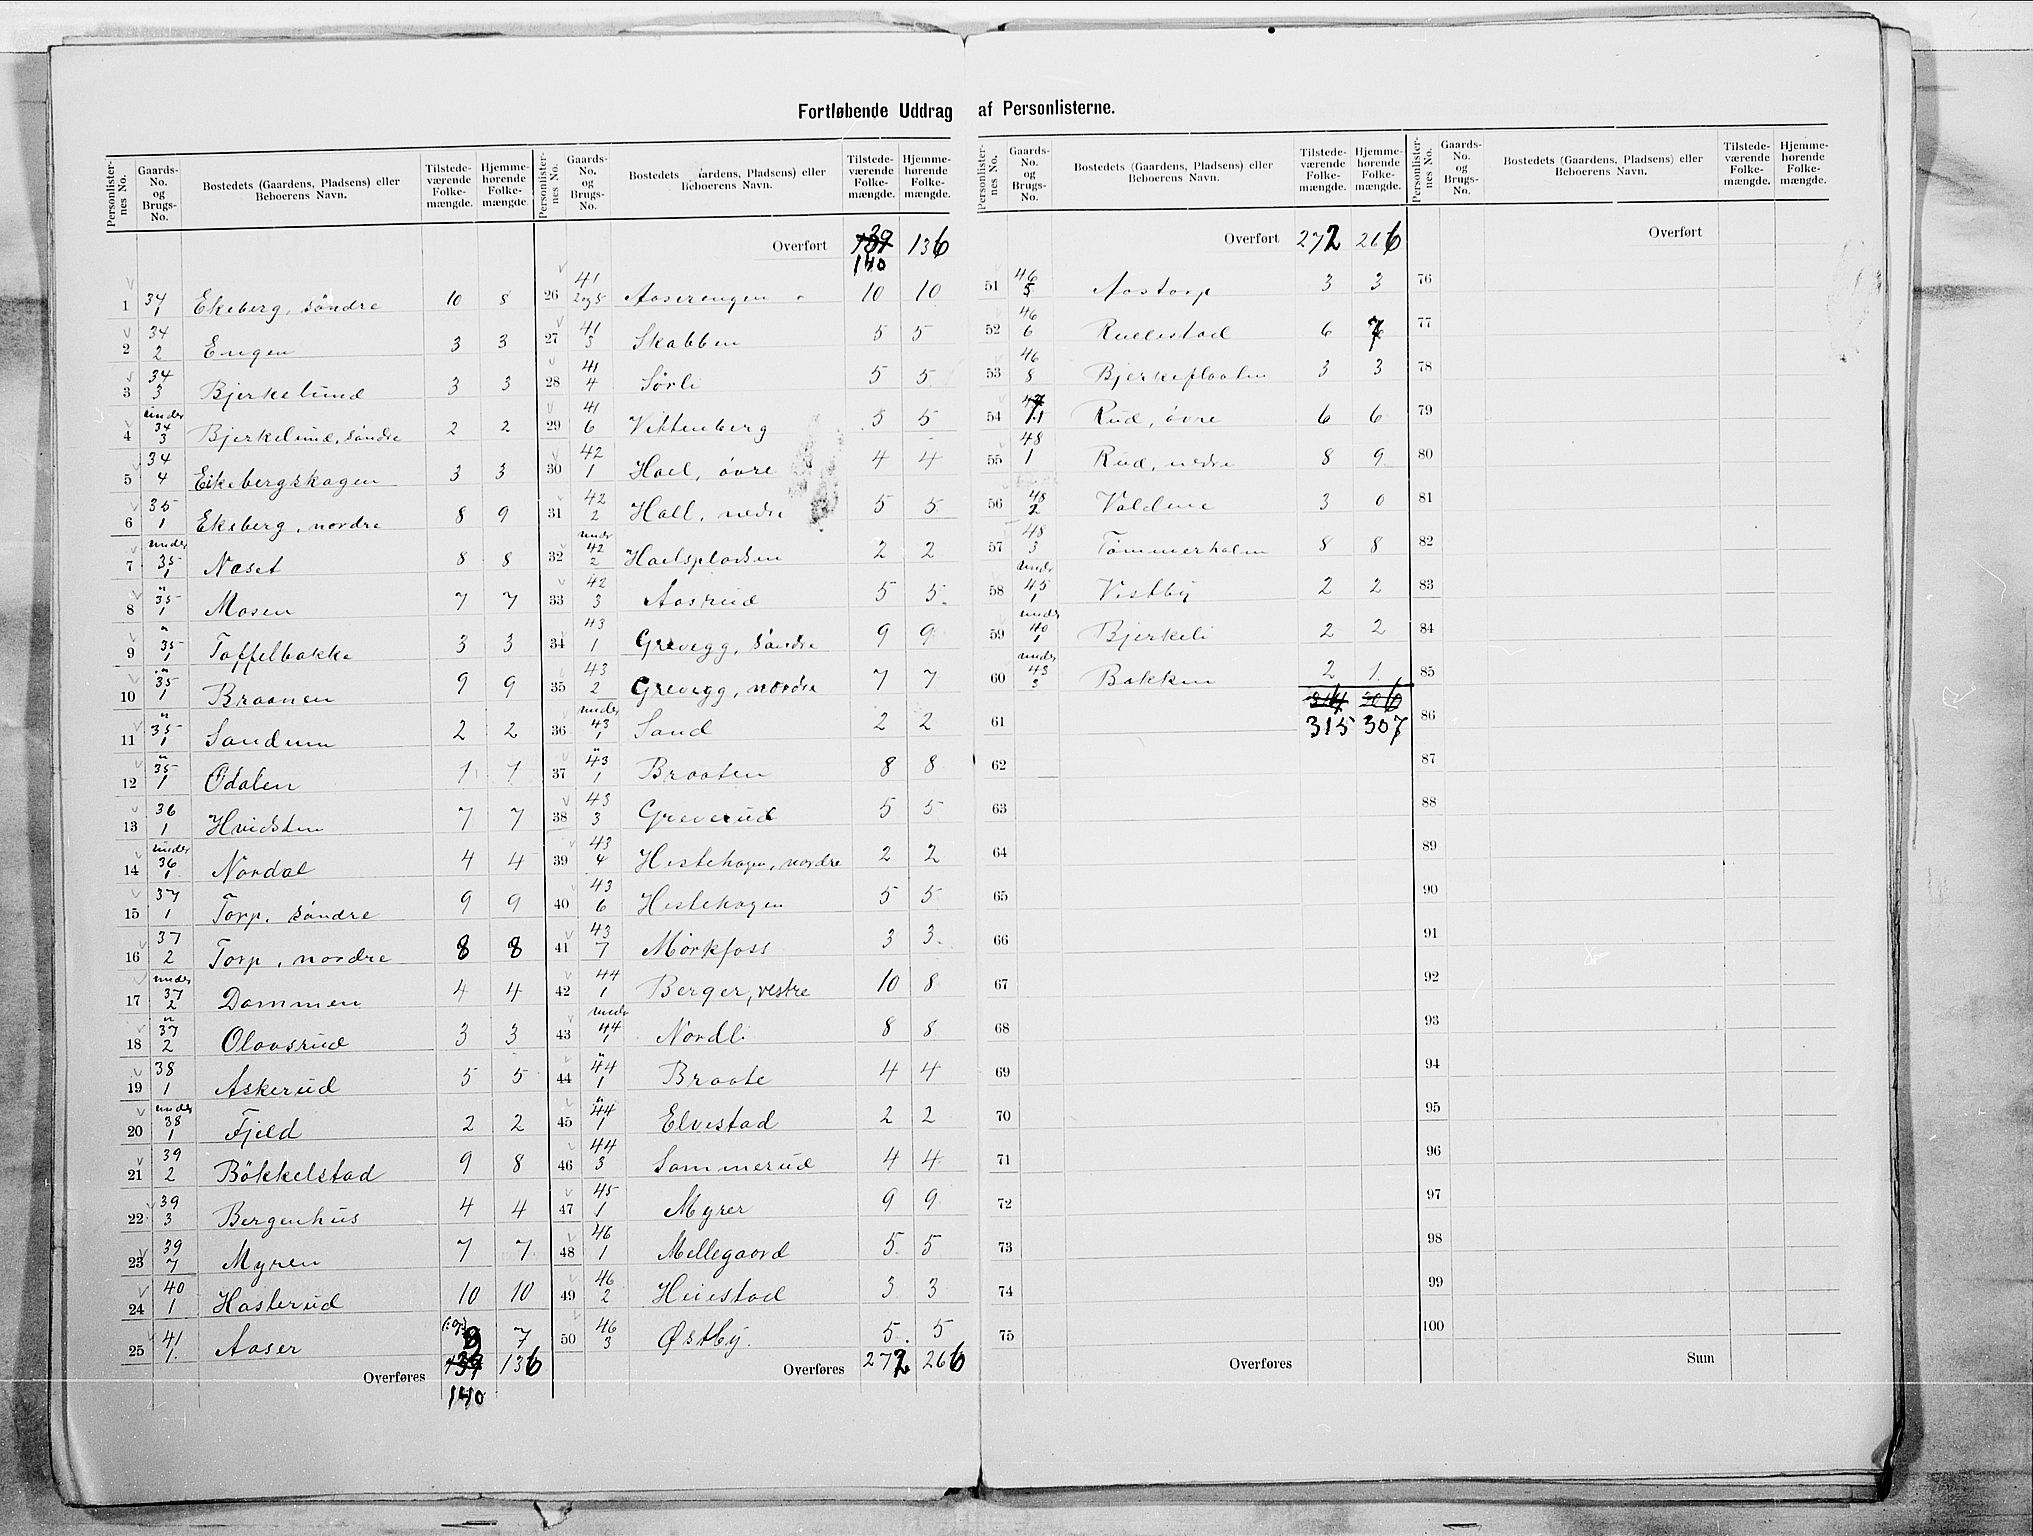 Fortløbende Uddrag af Personlisterne.
Personlister-nes No. Gaards-No. og Brugs-No. Bostedets (Gaardens, Pladsen) eller Beboerens Navn. Tilstede-værende Folke-mængde. Hjemme-hørende Folke-mængde.
1 34 1 Ekeberg, søndre 10 8
2 34 2 Engen 3 3
3 34 3 Bjerkelund 3 3
4 under 34 3 Bjerkelund, søndre 2 2
5 34 4 Eikebergskogen 3 3
6 35 1 Ekeberg, nordre 8 9
7 under 35 1 Næset 8 8
8 " 35 1 Mosen 7 7
9 " 35 1 Toffelbakke 3 3
10 " 35 1 Braanen 9 9
11 " 35 1 Sandum 2 2
12 " 35 1 Ødalen 1 1
13 36 1 Hvidsten 7 7
14 under 36 1 Nordal 4 4
15 37 1 Torp, søndre 9 9
16 37 2 Torp, nordre 8 8
17 under 37 2 Dammen 4 4
18 " 37 2 Olavsrud 3 3
19 38 1 Askerud 5 5
20 under 38 1 Fjeld 2 2
21 39 2 Bökkelstad 9 8
22 39 3 Bergenhus 4 4
23 39 7 Myren 7 7
24 40 1 Hasterud 10 10
25 41 1. Aaser 7
Overføres 136
140
Personlister-nes No. Gaards-No. og Brugs-No. Bostedets ardens, Pladsen) eller Beboerens Navn. Tilstede-værende Folke-mængde. Hjemme-hørende Folke-mængde.
Overført 136
140
26 41 2 og 5 Aaserengen 10 10
27 41 3 Skabben 5 5
28 41 4 Sørli 5 5
29 41 6 Vittenberg 5 5
30 42 1 Hael, øvre 4 4
31 42 2 Hall, nedre 5 5
32 under 42 2 Haelspladsen 2 2
33 42 3 Aasrud 5 5
34 43 1 Grevegg, søndre 9 9
35 43 2 Grevegg, nordre 7 7
36 under 43 1 Sand 2 2
37 " 43 1 Braaten 8 8
38 43 3 Greverud 5 5
39 43 4 Hestehagen, nordre 2 2
40 43 6 Hestehagen 5 5
41 43 7 Mørkfoss 3 3
42 44 1 Berger, vestre 10 8
43 under 44 1 Nordli 8 8
44 " 44 1 Braate 4 4
45 " 44 1 Elvestad 2 2
46 44 3 Sommerud 4 4
47 45 1 Myrer 9 9
48 46 1 Mellegaard 5 5
49 46 2 Heiestad 3 3
50 46 3 Østby. 5 5
Overføres 272 266
Personlister-nes No. Gaards-No. og Brugs-No. Bostedets (Gaardens, Pladsen) eller Beboerens Navn. Tilstede-værende Folke-mængde. Hjemme-hørende Folke-mængde.
Overført 272 266
51 46 5 Aastorp 3 3
52 46 6 Rullestad 6 7
53 46 8 Bjerkeplaaten 3 3
54 Rud, øvre 6 6
55 48 1 Rud, nedre 8 9
56 48 2 Valdene 3 0
57 48 3 Tømmerholm 8 8
58 under 45 1 Vestby 2 2
59 under 40 1 Bjerkeli 2 2
60 under 43 3 Bakken 2 1.
61 315 307
62
63
64
65
66
67
68
69
70
71
72
73
74
75
Overføres
Personlister-nes No. Gaards-No. og Brugs-No. Bostedets (Gaardens, Pladsen) eller Beboerens Navn. Tilstede-værende Folke-mængde. Hjemme-hørende Folke-mængde.
Overført
76
77
78
79
80
81
82
83
84
85
86
87
88
89
90
91
92
93
94
95
96
97
98
99
100
Sum